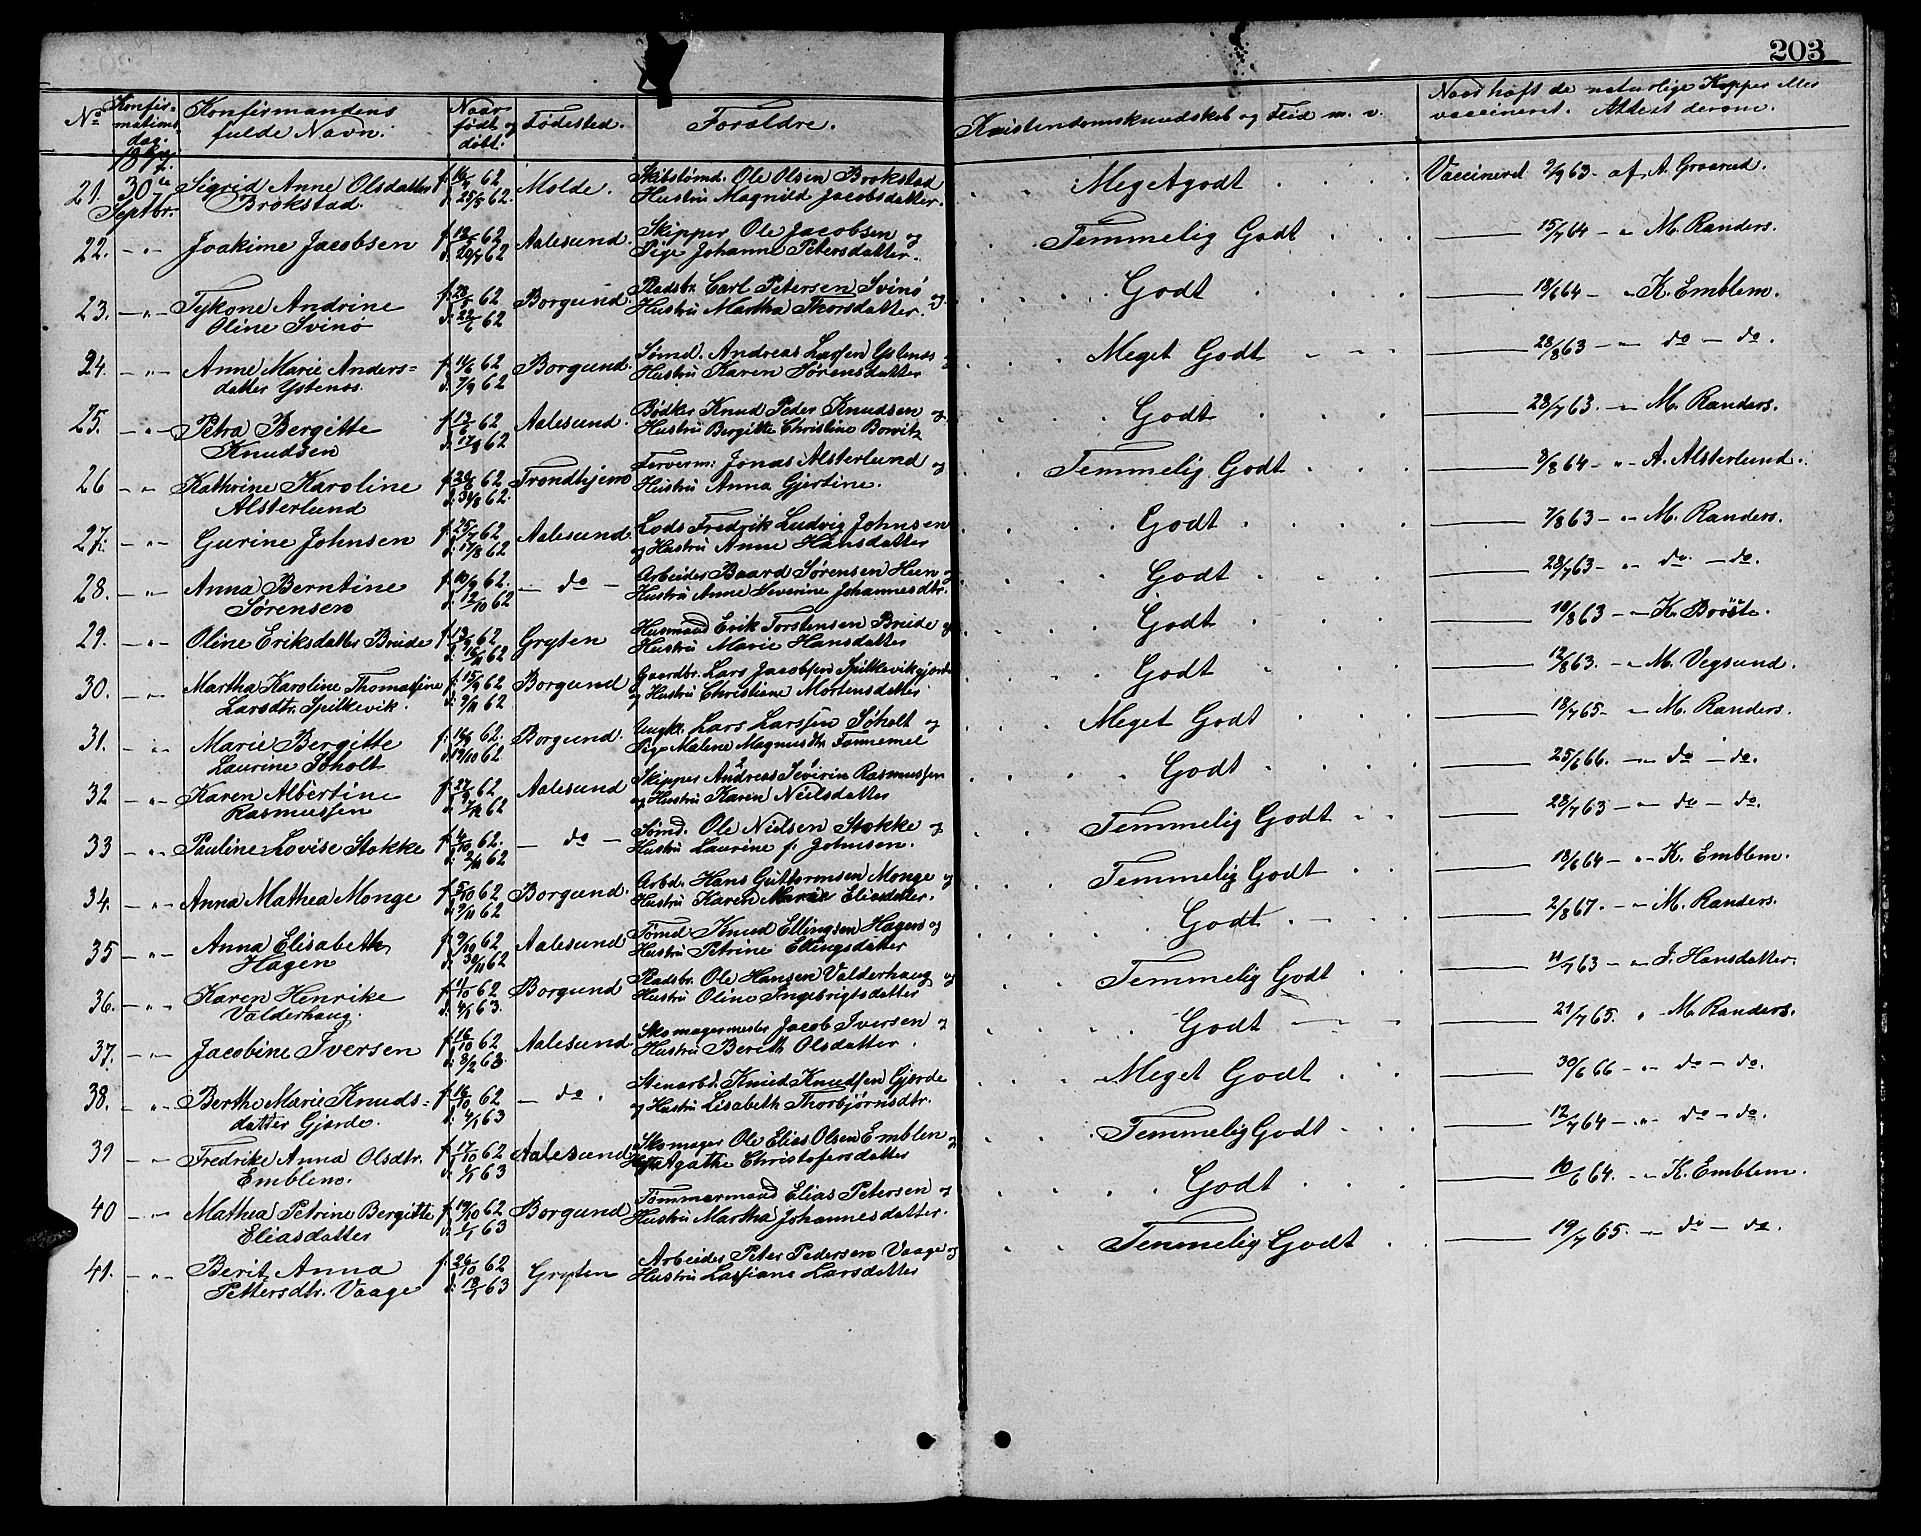 203
No
Konfir-
mations
dag.
1877.
Konfirmandens
fulde Navn.
Naar
født og
døbt.
Fødested.
Forældre.
Kristendomskundskab og Flid m. v.
Naar haft de naturlige Kopper eller
vaccineret. Attest derom.
21. 30te Septbr. Sigrid Anne Olsdatter
Brokstad.
62
d. 25/5 62.
Molde.
Skibstømd. Ole Olsen Brokstad
Hustru Magnild Jacobsdatter.
Meget godt
Vaccineret 2/9 63 - af A. Graarud.
22. -"- Joakime Jacobsen
62
d. 20/7 62
Aalesund.
Skipper Ole Jacobsen og
Pige Johanne Petersdatter.
Temmelig Godt
15/7 64 - " M. Randers.
23. -"- Tykone Andrine
Oline Svinø
62
d. 22/6 62
Borgund.
Pladsbr. Carl Petersen Svinø og
Hustru Martha Thorsdatter.
Godt
18/6 64 - " K. Emblem.
24. -"- Anne Marie Anders-
datter Ystenes.
f. 11/6 62
d. 7/9 62
Borgund.
Sømd. Andreas Larsen Ystenes og
Hustru Karen Sørensdatter
Meget Godt
28/8 63 - " do - do.
25. -"- Petra Bergitte
Knudsen
f. 13/6 62
d. 17/8 62
Aalesund.
Bødker Knud Peder Knudsen og
Hustru Bergitte Christine Borvitz
Godt
28/7 63. - " M. Randers.
26 -"- Kathrine Karoline
Alsterlund
62
d. 31/8 62.
Trondhjem
Farverm: Jonas Alsterlund og
Hustru Anna Gjertine.
Temmelig Godt
8/8 64 - " A. Alsterlund.
27. -"- Gurine Johnsen
f. 25/7 62
d. 17/8 62
Aalesund.
Lods Fredrik Ludvig Johnsen
og Hustru Anne Hansdatter
Godt
7/8 63 - " M. Randers.
28. -"- Anna Berntine
Sørensen
f. 10/9 62.
d. 12/10 62
- do -
Arbeider Baard Sørensen Heen og
Hustru Anne Severine Johannesdtr.
Godt
28/7 63 - " do. - do.
29. -"- Oline Eriksdatter Brude
62
d. 16/11 62
Gryten
Husmand Erik Torstensen Brude og
Hustru Marie Hansdatter
Godt
10/8 63 - " K. Brøste.
30. -"- Martha Karoline Thomassine
Larsdtr. Spilkevik.
f. 15/9 62
d. 9/11 62
Borgund
Gaardbr. Lars Jacobsen Spilkevikgjerde
og Hustru Christiane Mortensdatter
Godt
12/8 63. - " M. Vegsund.
31. -"- Marie Bergitte
Laurine Søholt
62.
d. 19/10 62
Borgund.
Ungkr. Lars Larssen Søholt og
Pige Malene Magnusdtr. Fannemel
Meget Godt
18/7 65 - " M. Randers.
32 -"- Karen Albertine
Rasmussen
62
62
Aalesund
Skipper Andreas Severin Rasmussen
og Hustru Karen Neilsdatter
Godt
25/6 66. - " do - do.
33 -"- Pauline Lovise Stokke
62.
d. 2/11 62
- do -
Sømd. Ole Nielsen Stokke og
Hustru Laurine f. Johnsen.
Temmelig Godt
28/7 63 - " do - do.
34. -"- Anna Mathea Monge
f. 5/10 62
d. 9/11 62
Borgund.
Arbd. Hans Guttormsen Monge og
Hustru Karen Marie Eliasdatter.
Temmelig Godt
18/6 64 - " K. Emblem.
35 -"- Anna Elisabeth
Hagen
f. 9/10 62
d. 30/11 62
Aalesund
Tømd. Knud Ellingsen Hagen og
Hustru Petrine Ellingsdatter
Godt.
2/8 67. - " M. Randers.
36. -"- Karen Henrike
Valderhaug.
f. 11/10 62
d. 4/1 63.
Borgund
Pladsbr. Ole Hansen Valderhaug og
Hustru Oline Ingebrigtsdatter
Temmelig Godt
11/7 63 - " J. Hansdatter.
37. -"- Jacobine Iversen
f. 16/10 62
d. 8/2 63.
Aalesund.
Skomagermester Jacob Iversen og
Hustru Berith Olsdatter.
Godt
21/7 65. " M. Randers.
38. -"- Berthe Marie Knuds-
datter Gjerde.
f. 16/10 62
d. 4/1 63
- do.
Stenarbd. Knud Knudsen Gjerde
og Hustru Lisabeth Thorbjørnsdtr.
Meget Godt
30/6 66 - " do - do.
39 -"- Fredrike Anna Olsdtr.
Emblem.
f. 17/10 62
d. 1/1 63
Aalesund
Skomager Ole Elias Olsen Emblem og
Hustru Agathe Christofersdatter
Temmelig Godt
12/7 64 - " do - do.
40 -"- Mathea Petrine Bergitte
Eliasdatter
f. 19/10 62
d. 1/1 63
Borgund
Tømmermand Elias Petersen og
Hustru Martha Johannesdatter.
Godt
10/6 64. - " K. Emblem.
41. -"- Berit Anna
Pettersdtr. Vaage
f. 26/10 62
d. 18/1 63
Gryten
Arbeider Peter Pedersen Vaage og
Hustru Lassiane Larsdatter
Temmelig Godt
19/7 65. - " do - do.